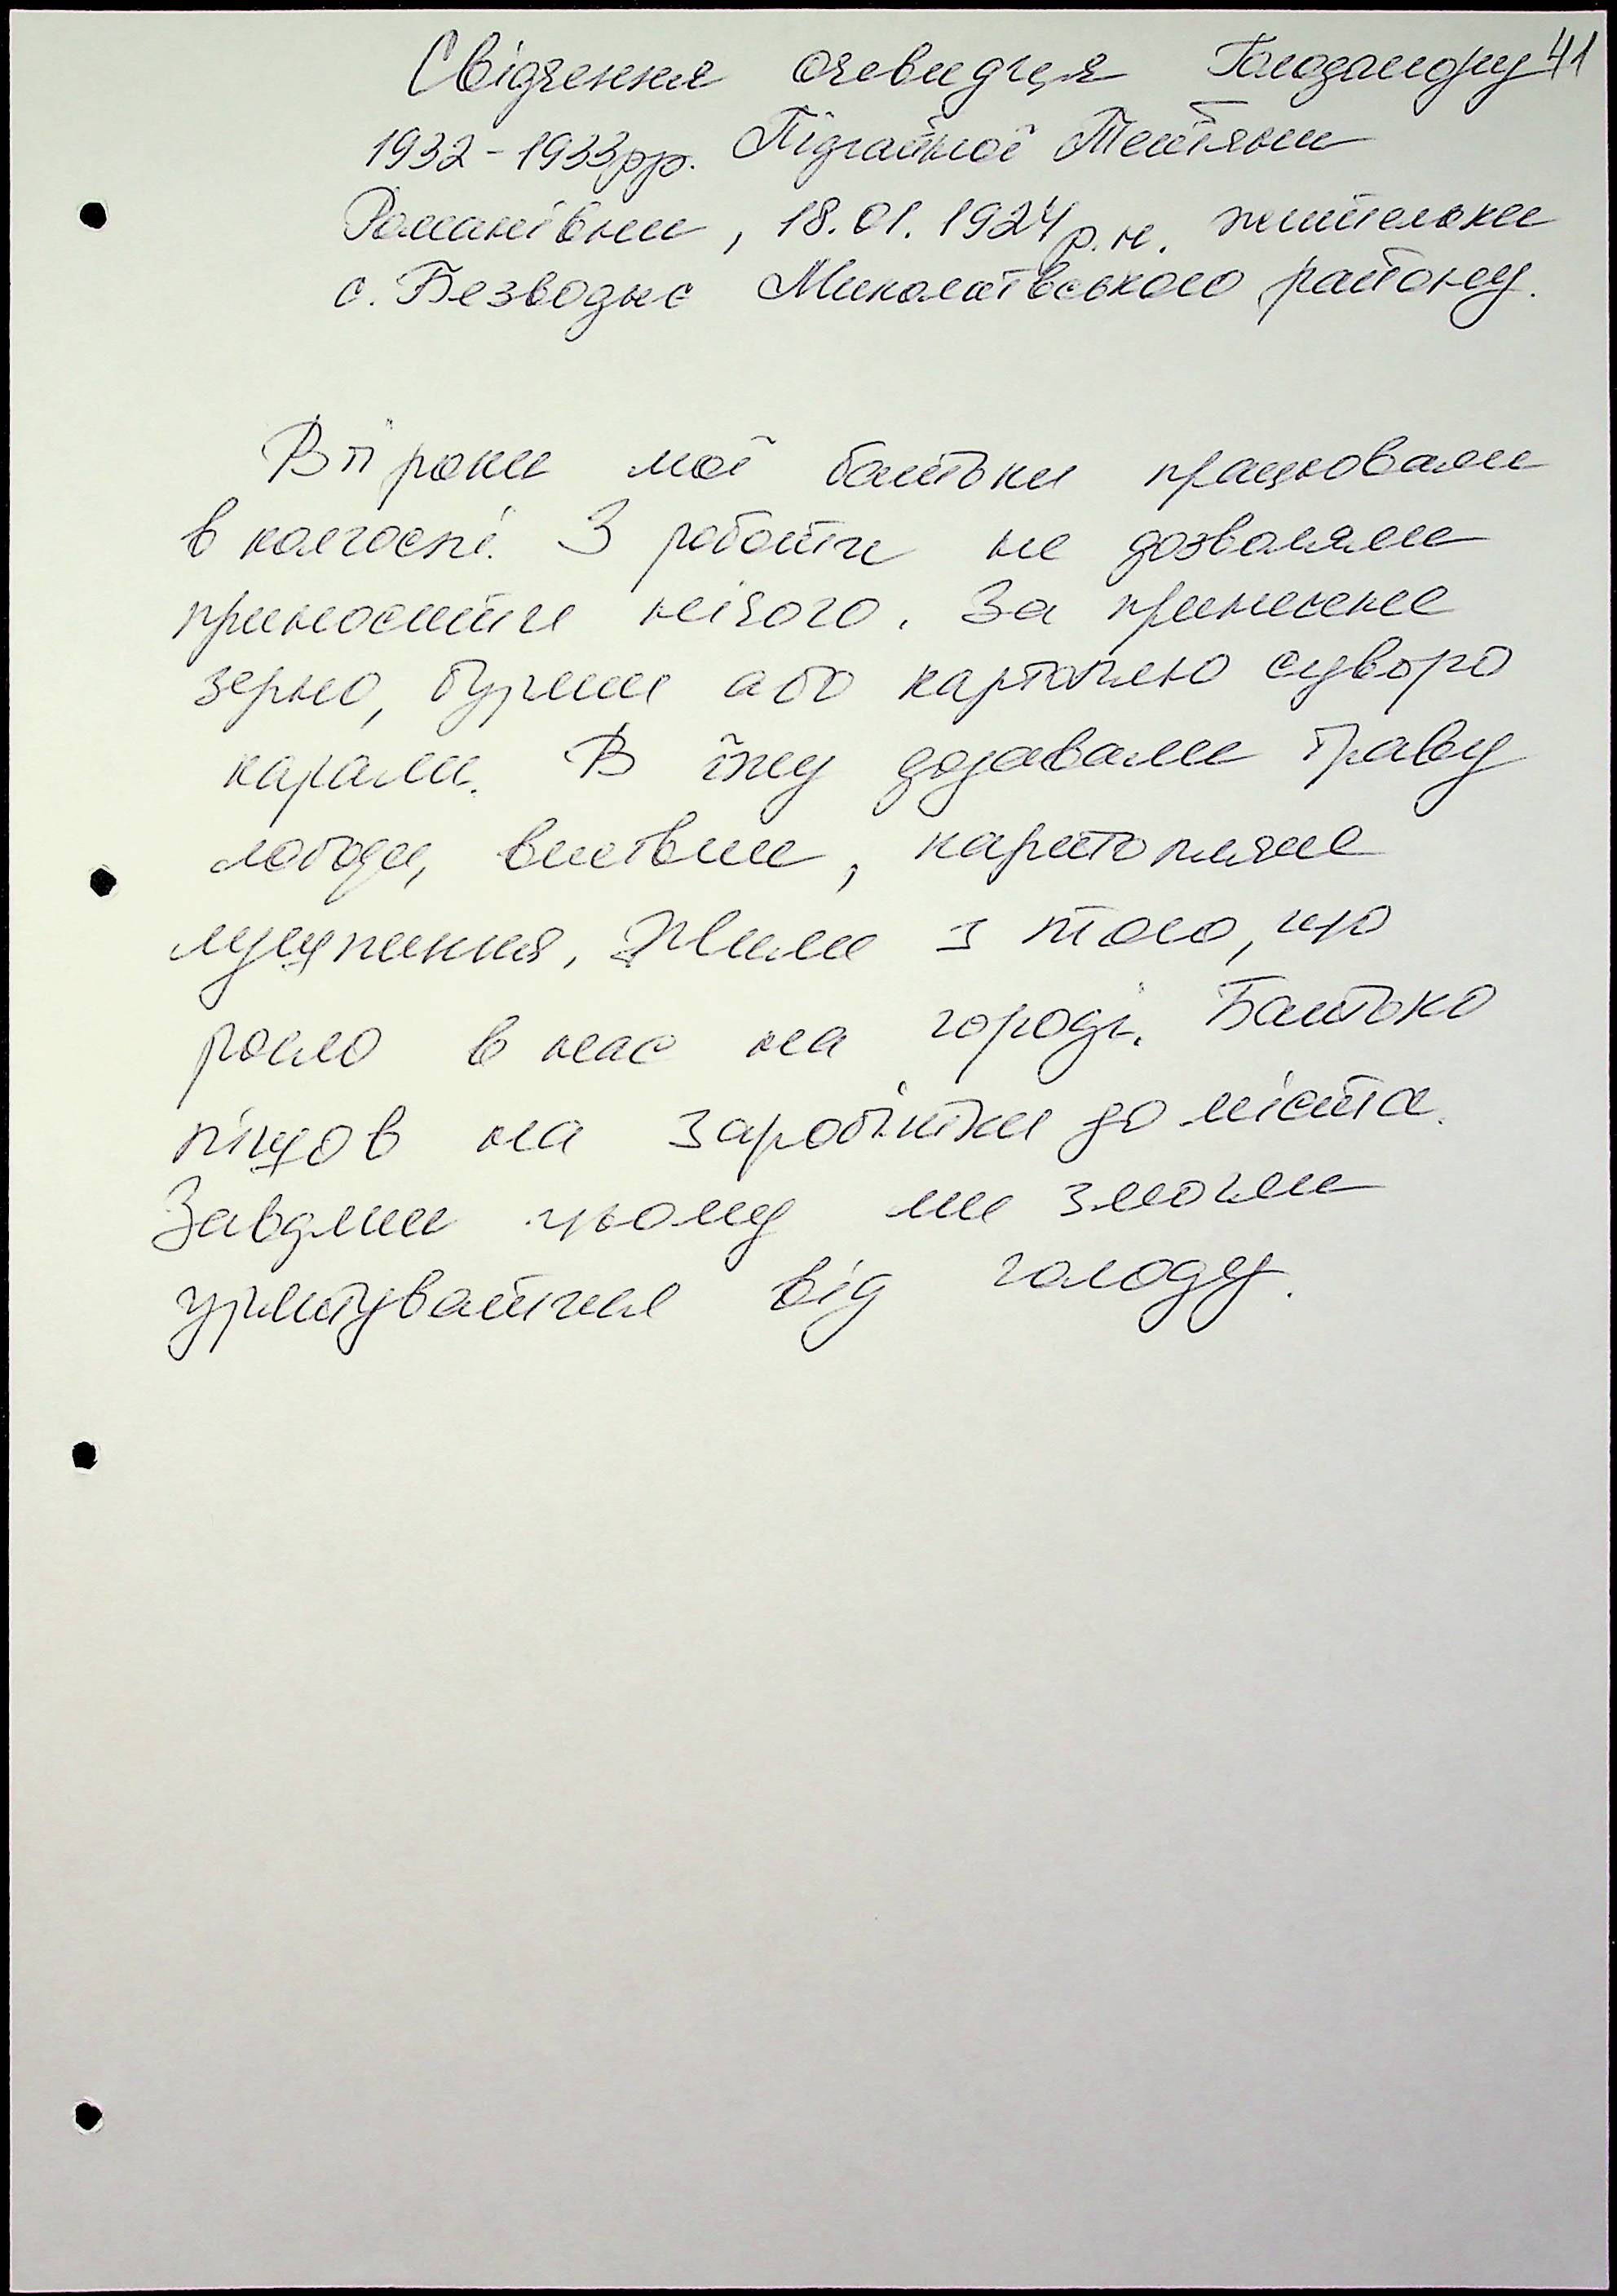 Свідчення очевидця Голодомору 41
1932-1933рр. Підгайної Тетяни
Романівни, 18.01.1924р.н. жительки
с. Безводне Миколаївського району.
В ті роки мої батьки працювали
в колгоспі. З роботи не дозволяли
приносити нічого. За принесене
зерно, буряки або картоплю суворо
карали. В їжу додавали траву
лободи, картопляне
лушпиння. Жили з того, що
росло в нас на городі. Батько
пішов на заробітки до міста.
Завдяки цьому ми змогли
урятуватися від голоду.